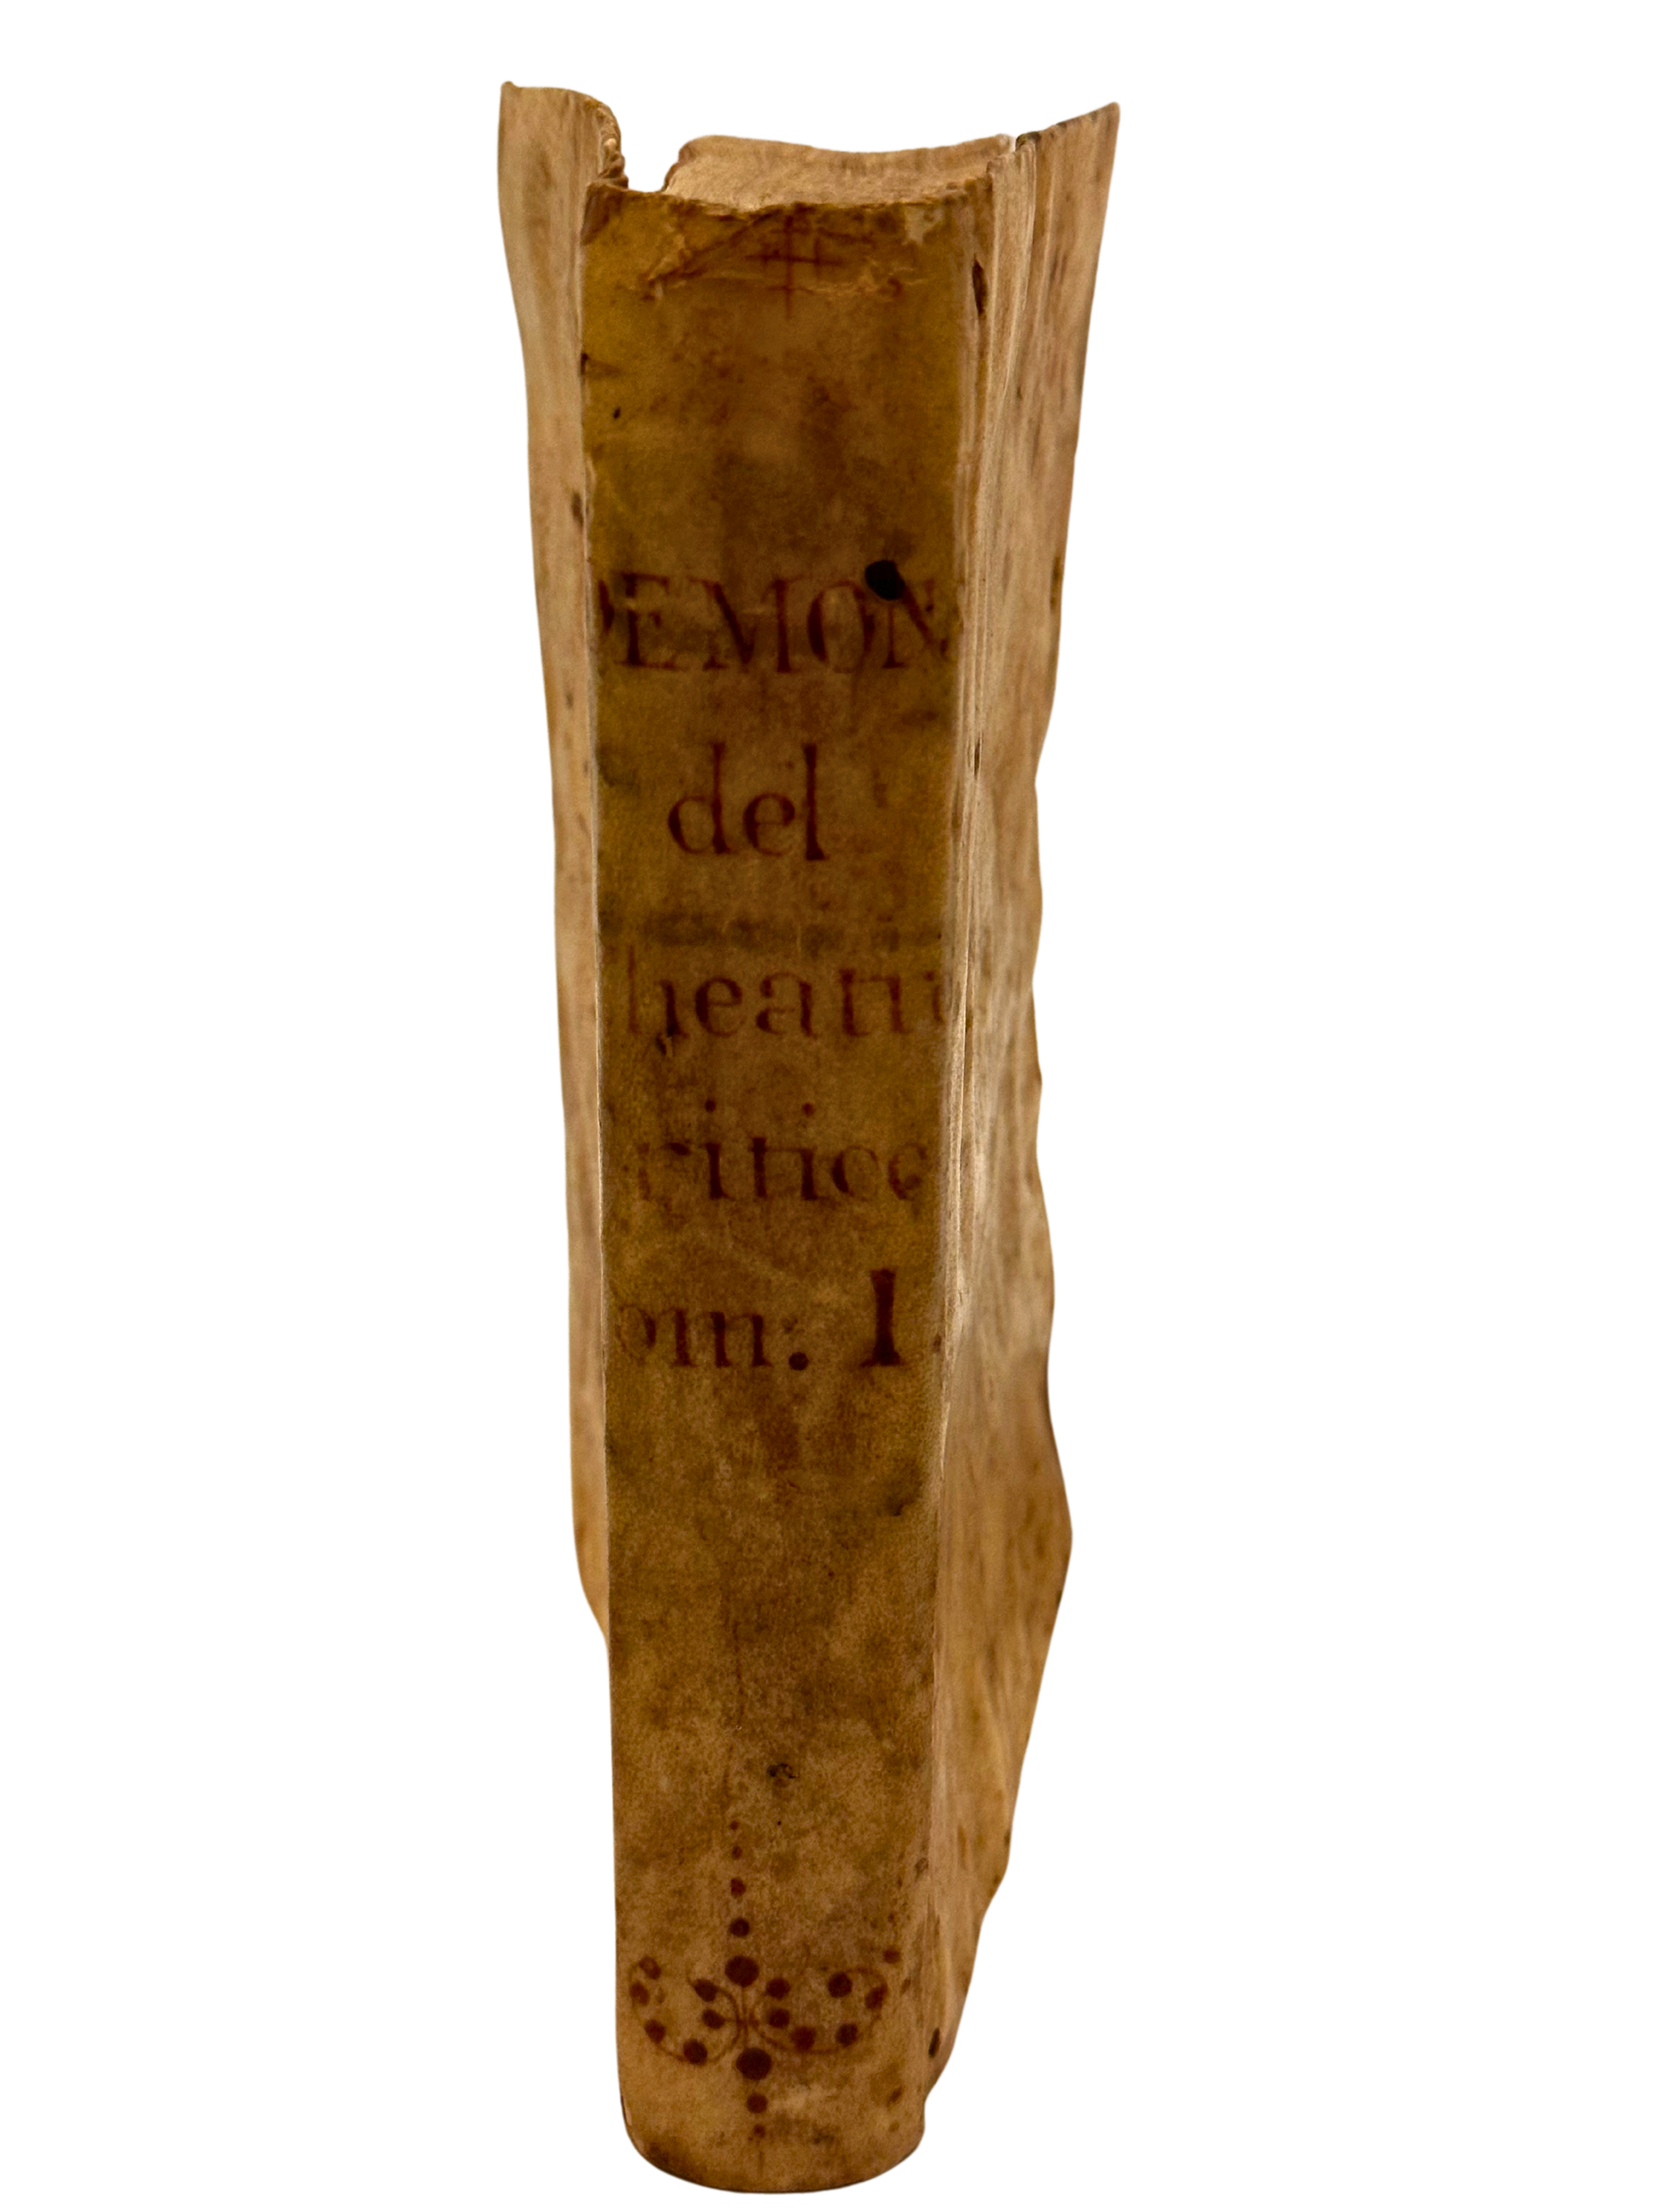 DEMON
del
heatr
ritico
om. I